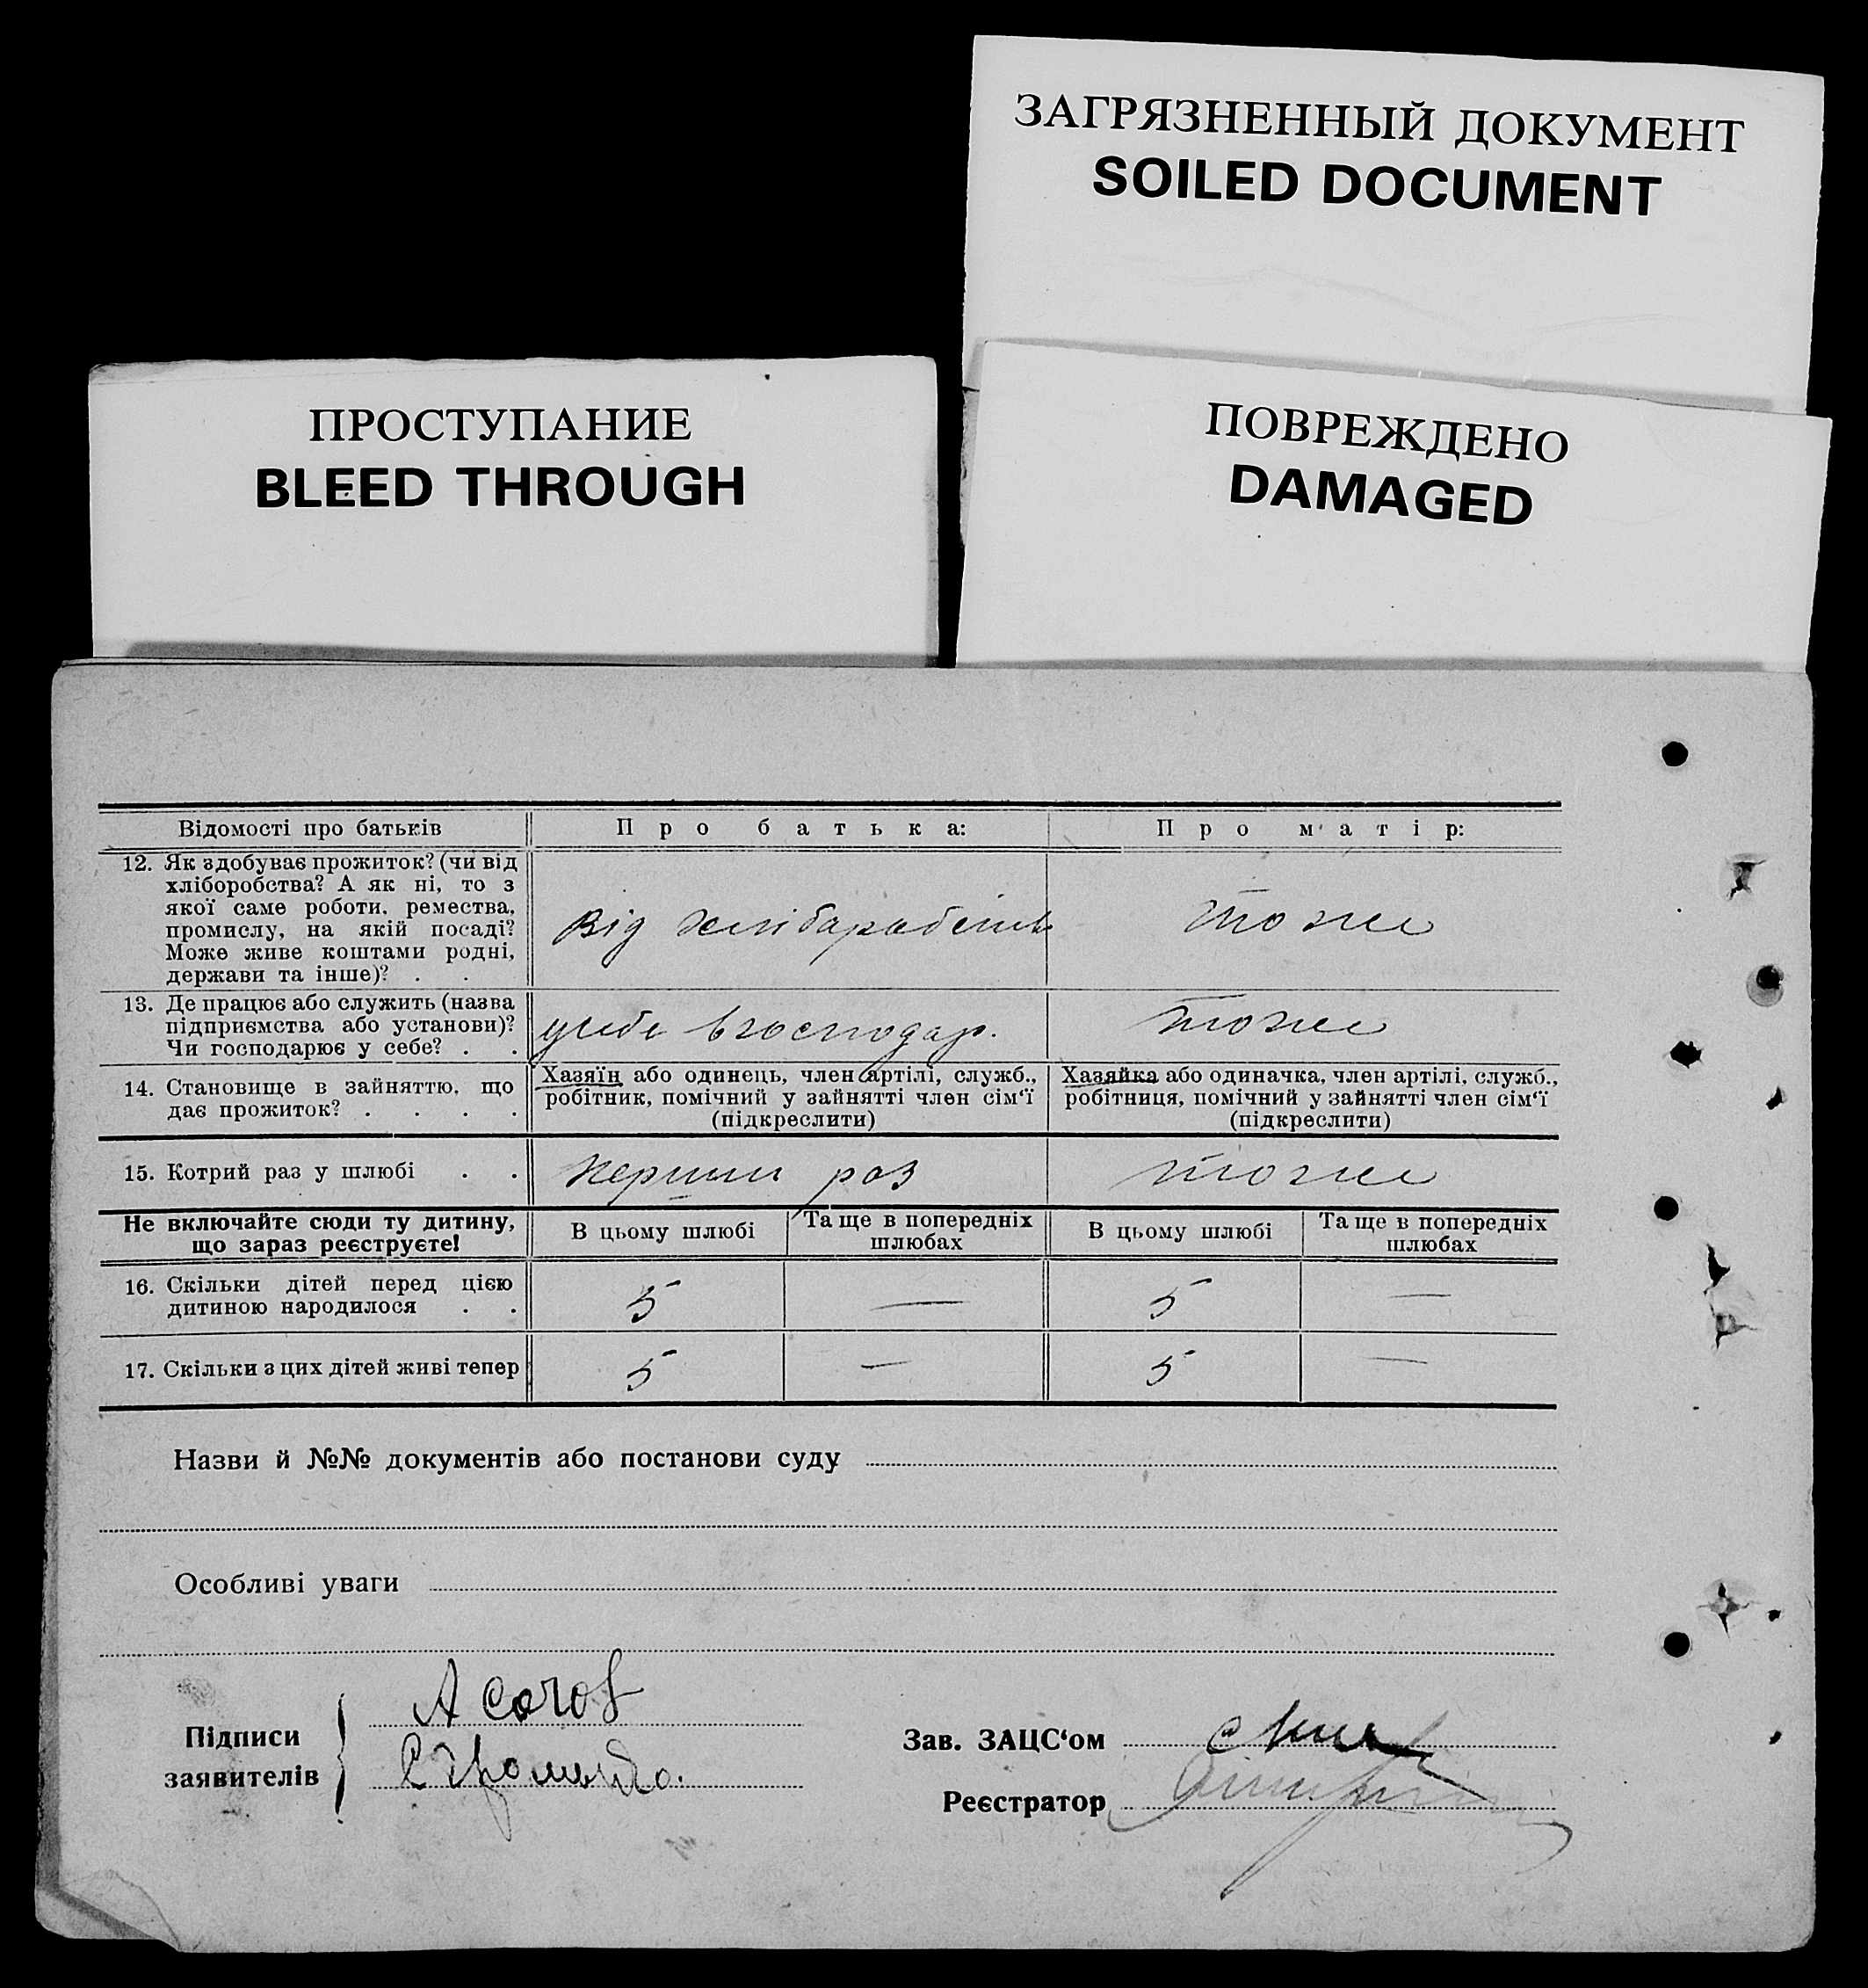 ЗАГРЯЗНЕННЫЙ ДОКУМЕНТ
SOILED DOCUMENT
ПРОСТУПАНИЕ
BLEED THROUGH
ПОВРЕЖДЕНО
DAMAGED
Відомості про батьків П р о б а т ь к а: П р о м а т і р:
12. Як здобуває прожиток? (чи від
хліборобства? А як ні, то з
якої саме роботи, ремества,
промислу, на якій посаді?
Може живе коштами родні,
держави та інше)? . .
Від тоже
13. Де працює або служить (назва
підприємства або установи)?
Чи господарює у себе? . .
в господар. тоже
14. Становище в зайняттю, що
дає прожиток? . . . .
Хазяїн або одинець, член артілі, служб.,
робітник, помічний у зайнятті член сім‘ї
(підкреслити)
Хазяйка або одиначка, член артілі, служб.,
робітниця, помічний у зайнятті член сім‘ї
(підкреслити)
15. Котрий раз у шлюбі . . раз тоже
Не включайте сюди ту дитину,
що зараз реєструєте!
В цьому шлюбі
Та ще в попередніх
шлюбах
В цьому шлюбі
Та ще в попередніх
шлюбах
16. Скільки дітей перед цією
дитиною народилося . .
5 — 5 —
17. Скільки з цих дітей живі тепер 5 — 5 —
Назви й №№ документів або постанови суду
Особливі уваги
Підписи
заявителів
А Сочов
Зав. ЗАЦС‘ом
Реєстратор